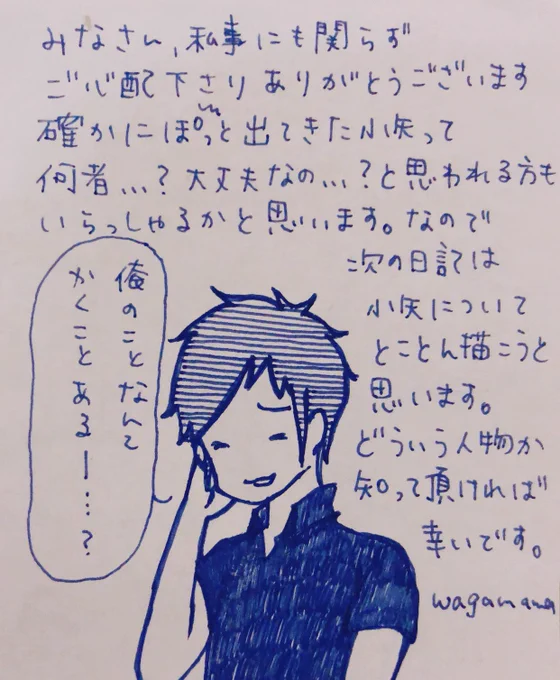 みなさん、私事にも関らず
ご心配下さり ありがとうございます
確かにぽっと出てきた小矢って
何者...？大丈夫なの...？と思われる方も
いらっしゃるかと思います。なので
次の日記は
小矢について
とことん描こうと
思います。
どういう人物か
知って頂ければ
幸いです。
俺のことなんて
かくことあるー...？
wagamama